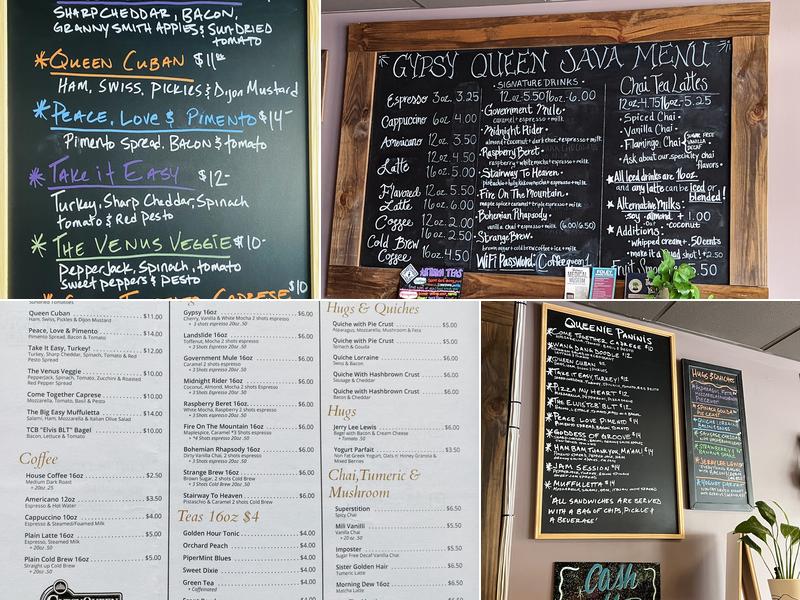 SHARP CHEDDAR, BACON,
GRANNY SMITH APPLES & SUN DRIED
tomato
*QUEEN CUBAN $11
HAM, SWISS, PICKLES & Dijon Mustard
*PEACE, LOVE & PIMENTO $14-
Pimento Spread, BACON & tomato
*TAKE it EASY $12-
Turkey, Sharp Cheddar, Spinach
tomato & Red pesto
*THE VENUS VEGGIE $10-
PepperJack, Spinach, tomato
Sweet peppers & PESTO
CAPRESE $10
GYPSY QUEEN JAVA MENU
Espresso 3oz. 3.25
Cappuccino 6oz 4.00
Americano 12oz 3.50
Latte 12oz 4.50
16oz 5.00
Flavored 12oz 5.50
Latte 16oz 6.00
Coffee 12oz 2.00
16oz 2.50
Cold Brew
Coffee 16oz 4.50
• SIGNATURE DRINKS •
12oz-5.50 16oz-6.00
•Government Mule•
caramel+espresso+milk
•Midnight Rider•
almond+coconut+dark choc.+espresso+milk
•Raspberry Beret•
raspberry+white mocha+espresso+milk
•Stairway To Heaven•
•Fire On The Mountain•
maple spice+caramel+triple espresso+milk
•Bohemian Rhapsody•
vanilla chai+espresso+milk (6.00/6.50)
•Strange Brew•
brown sugar+cold brew coffee+ice+milk
WiFi Password: Coffeequeen1
Chai Tea Lattes
12oz-4.75 16oz-5.25
•Spiced Chai•
•Vanilla Chai•
•Flamingo Chai•
SUGAR FREE
VANILLA
DECAF
•Ask about our specialty chai
flavors•
★All Iced drinks are 16oz
and any latte can be iced or
blended!
★Alternative Milks•
•soy •almond +1.00
•Oat •coconut
★Additions:
•whipped cream .50 cents
•make it a Quad shot! +2.50
ARTISAN TEAS
MEDICAL
MUSEUM
Sundried Tomatoes
Queen Cuban $11.00
Ham, Swiss, Pickles & Dijon Mustard
Peace, Love & Pimento $14.00
Pimento Spread, Bacon & Tomato
Take It Easy, Turkey! $12.00
Turkey, Sharp Cheddar, Spinach, Tomato & Red
Pesto Spread
The Venus Veggie $10.00
PepperJack, Spinach, Tomato, Zucchini & Roasted
Red Pepper Spread
Come Together Caprese $10.00
Mozzarella, Tomato, Basil & Pesto
The Big Easy Muffuletta $14.00
Salami, Ham, Mozzarella & Italian Olive Salad
TCB "Elvis BLT" Bagel $10.00
Bacon, Lettuce & Tomato
Coffee
House Coffee 16oz $2.50
Medium Dark Roast
+ 20oz .25
Americano 12oz $3.50
Espresso & Hot Water
Cappuccino 10oz $4.00
Espresso & Steamed/Foamed Milk
Plain Latte 16oz $5.00
Espresso, Steamed Milk
+ 20oz .50
Plain Cold Brew 16oz $5.00
Straight up Cold Brew
+ 20oz .50
Gypsy 16oz $6.00
Caramel, Cherry & White Mocha 2 shots espresso
+ 3 shots espresso 20oz .50
Landslide 16oz $6.00
Toffenut, Mocha 2 shots espresso
+ 3 Shots espresso 20oz .50
Government Mule 16oz $6.00
Caramel 2 shots espresso
+ 3 shots espresso 20oz .50
Midnight Rider 16oz $6.00
Coconut, Almond, Mocha 2 shots espresso
+ 3 Shots Espresso 20oz .50
Raspberry Beret 16oz. $6.00
White Mocha, Raspberry 2 shots espresso
+ 3 Shots Espresso 20oz .50
Fire On The Mountain 16oz $6.00
Maplespice, Caramel *3 Shots Espresso 16oz
+ *4 Shots espresso 20oz .50
Bohemian Rhapsody 16oz $6.00
Dirty Vanilla Chai, 2 shots espresso
+ 3 Shots espresso 20oz .50
Strange Brew 16oz $6.00
Brown Sugar, 2 shots Cold Brew
+ 3 Shots Cold Brew 20oz .50
Stairway To Heaven $6.00
Pistaschio & Caramel 2 shots Cold Brew
Teas 16oz $4
Golden Hour Tonic $4.00
Orchard Peach $4.00
PiperMint Blues $4.00
Sweet Dixie $4.00
Green Tea $4.00
• Caffeinated
$4.00
Hugs & Quiches
Quiche with Pie Crust $5.00
Asparagus, Mozzarella, Mushroom & Feta
Quiche with Pie Crust $5.00
Spinach & Gouda
Quiche Lorraine $6.00
Swiss & Bacon
Quiche With Hashbrown Crust $6.00
Sausage & Cheddar
Quiche With Hashbrown Crust $6.00
Bacon & Cheddar
Hugs
Jerry Lee Lewis $6.00
Bagel with Bacon & Cream Cheese
+ Tomato .50
Yogurt Parfait $3.50
Non Fat Greek Yogurt, Oats n' Honey Granola &
Mixed Berries
Chai, Tumeric &
Mushroom
Superstition $5.50
Spicy Chai
Mili Vanilli $5.50
Vanilla Chai
+ 20 oz .50
Imposter $5.50
Sugar Free Decaf Vanilla Chai
Sister Golden Hair $6.50
Tumeric Latte
Morning Dew 16oz $6.50
Matcha Latte
$6.50
QUEENIE PANINIS
*COME TOGETHER CAPRESE $10
*WANG DANG DOODLE $12
*QUEEN CUBAN
*TAKE IT EASY TURKEY! $12
*PIZZA MY HEART $12
*THE ELVISTCB BLT $12
*PEACE LOVE PIMENTO $14
*GODDESS OF GROOVE $14
*HAM BAM THANK YOU MA'AM! $14
*JAM SESSION $14
*MUFFULETTA $14
"ALL SANDWICHES ARE SERVED
WITH A BAG OF CHIPS, PICKLE &
A BEVERAGE"
HUGS & QUICHES
Cash